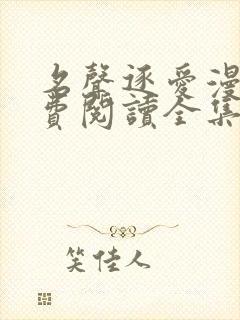 名聲逐愛漫
費閱讀全集
笑佳人